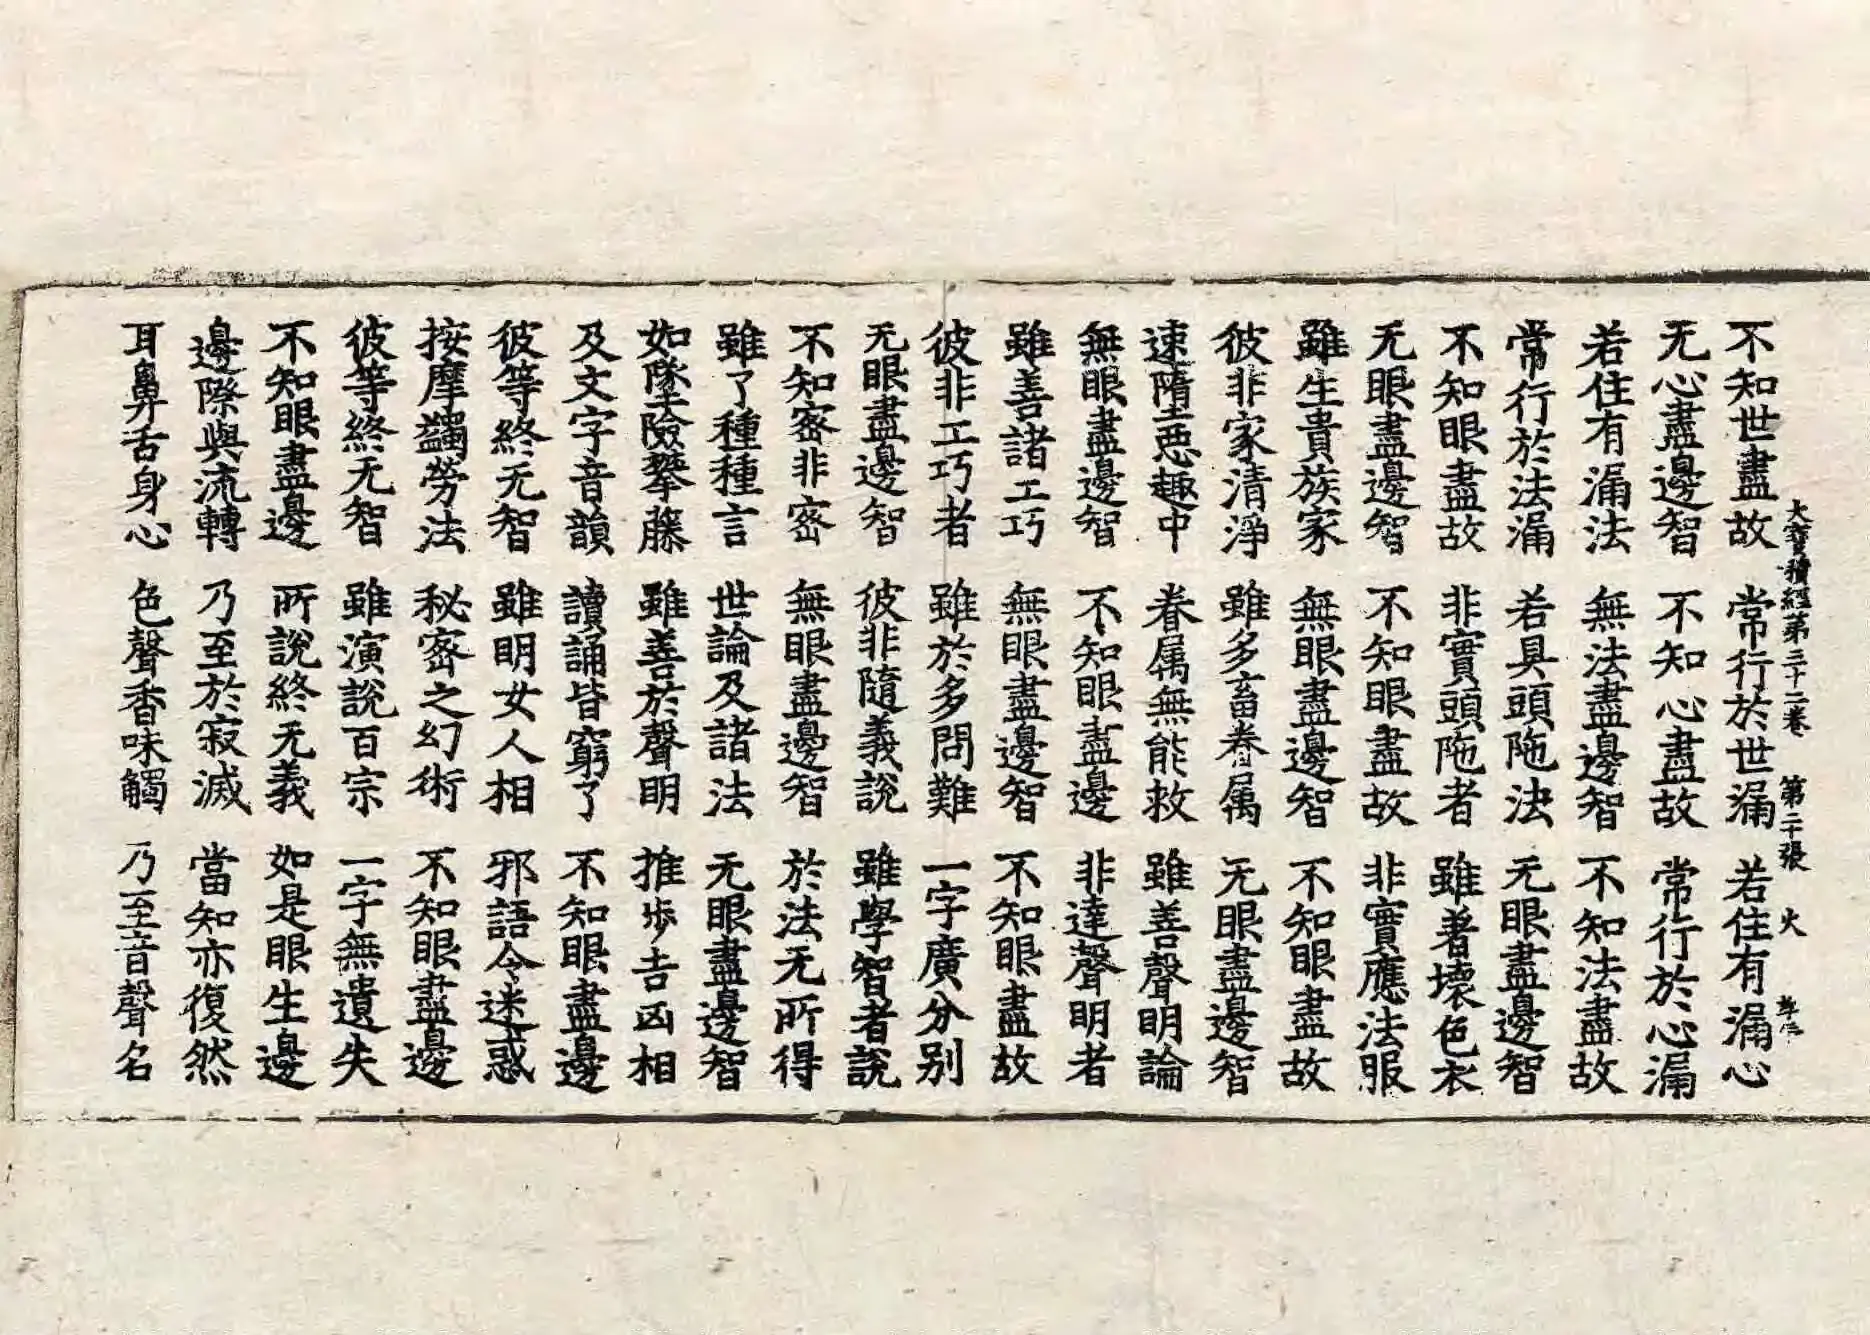 大寶積經第三十二卷　第二十張　火
不知世盡故　常行於世漏　若住有漏心
无心盡邊智　不知心盡故　常行於心漏
若住有漏法　無法盡邊智　不知法盡故
常行於法漏　若具頭陁法　无眼盡邊智
不知眼盡故　非實頭陁者　雖著壞色衣
无眼盡邊智　不知眼盡故　非實應法服
雖生貴族家　無眼盡邊智　不知眼盡故
彼非家清淨　雖多畜眷属　无眼盡邊智
速墮惡趣中　眷属無能救　雖善聲明論
無眼盡邊智　不知眼盡邊　非達聲明者
雖善諸工巧　無眼盡邊智　不知眼盡故
彼非工巧者　雖於多問難　一字廣分別
无眼盡邊智　彼非隨義說　雖學智者說
不知密非密　無眼盡邊智　於法无所得
雖了種種言　世論及諸法　无眼盡邊智
如墜險攀藤　雖善於聲明　推步吉凶相
及文字音韻　讀誦皆窮了　不知眼盡邊
彼等終无智　雖明女人相　邪語令迷惑
按摩蠲勞法　秘密之幻術　不知眼盡邊
彼等終无智　雖演說百宗　一字無遺失
不知眼盡邊　所說終无義　如是眼生邊
邊際與流轉　乃至於寂滅　當知亦復然
耳鼻舌身心　色聲香味觸　乃至音聲名